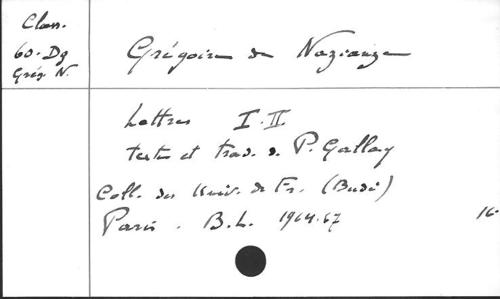 Class.
60-Dg
Grég N.
Grégoire de Nazianze
Lettres I-II
texte et trad. de P. Gallay
Coll. des Univ. de Fr. (Budé)
Paris. B.L. 1964-67
16.